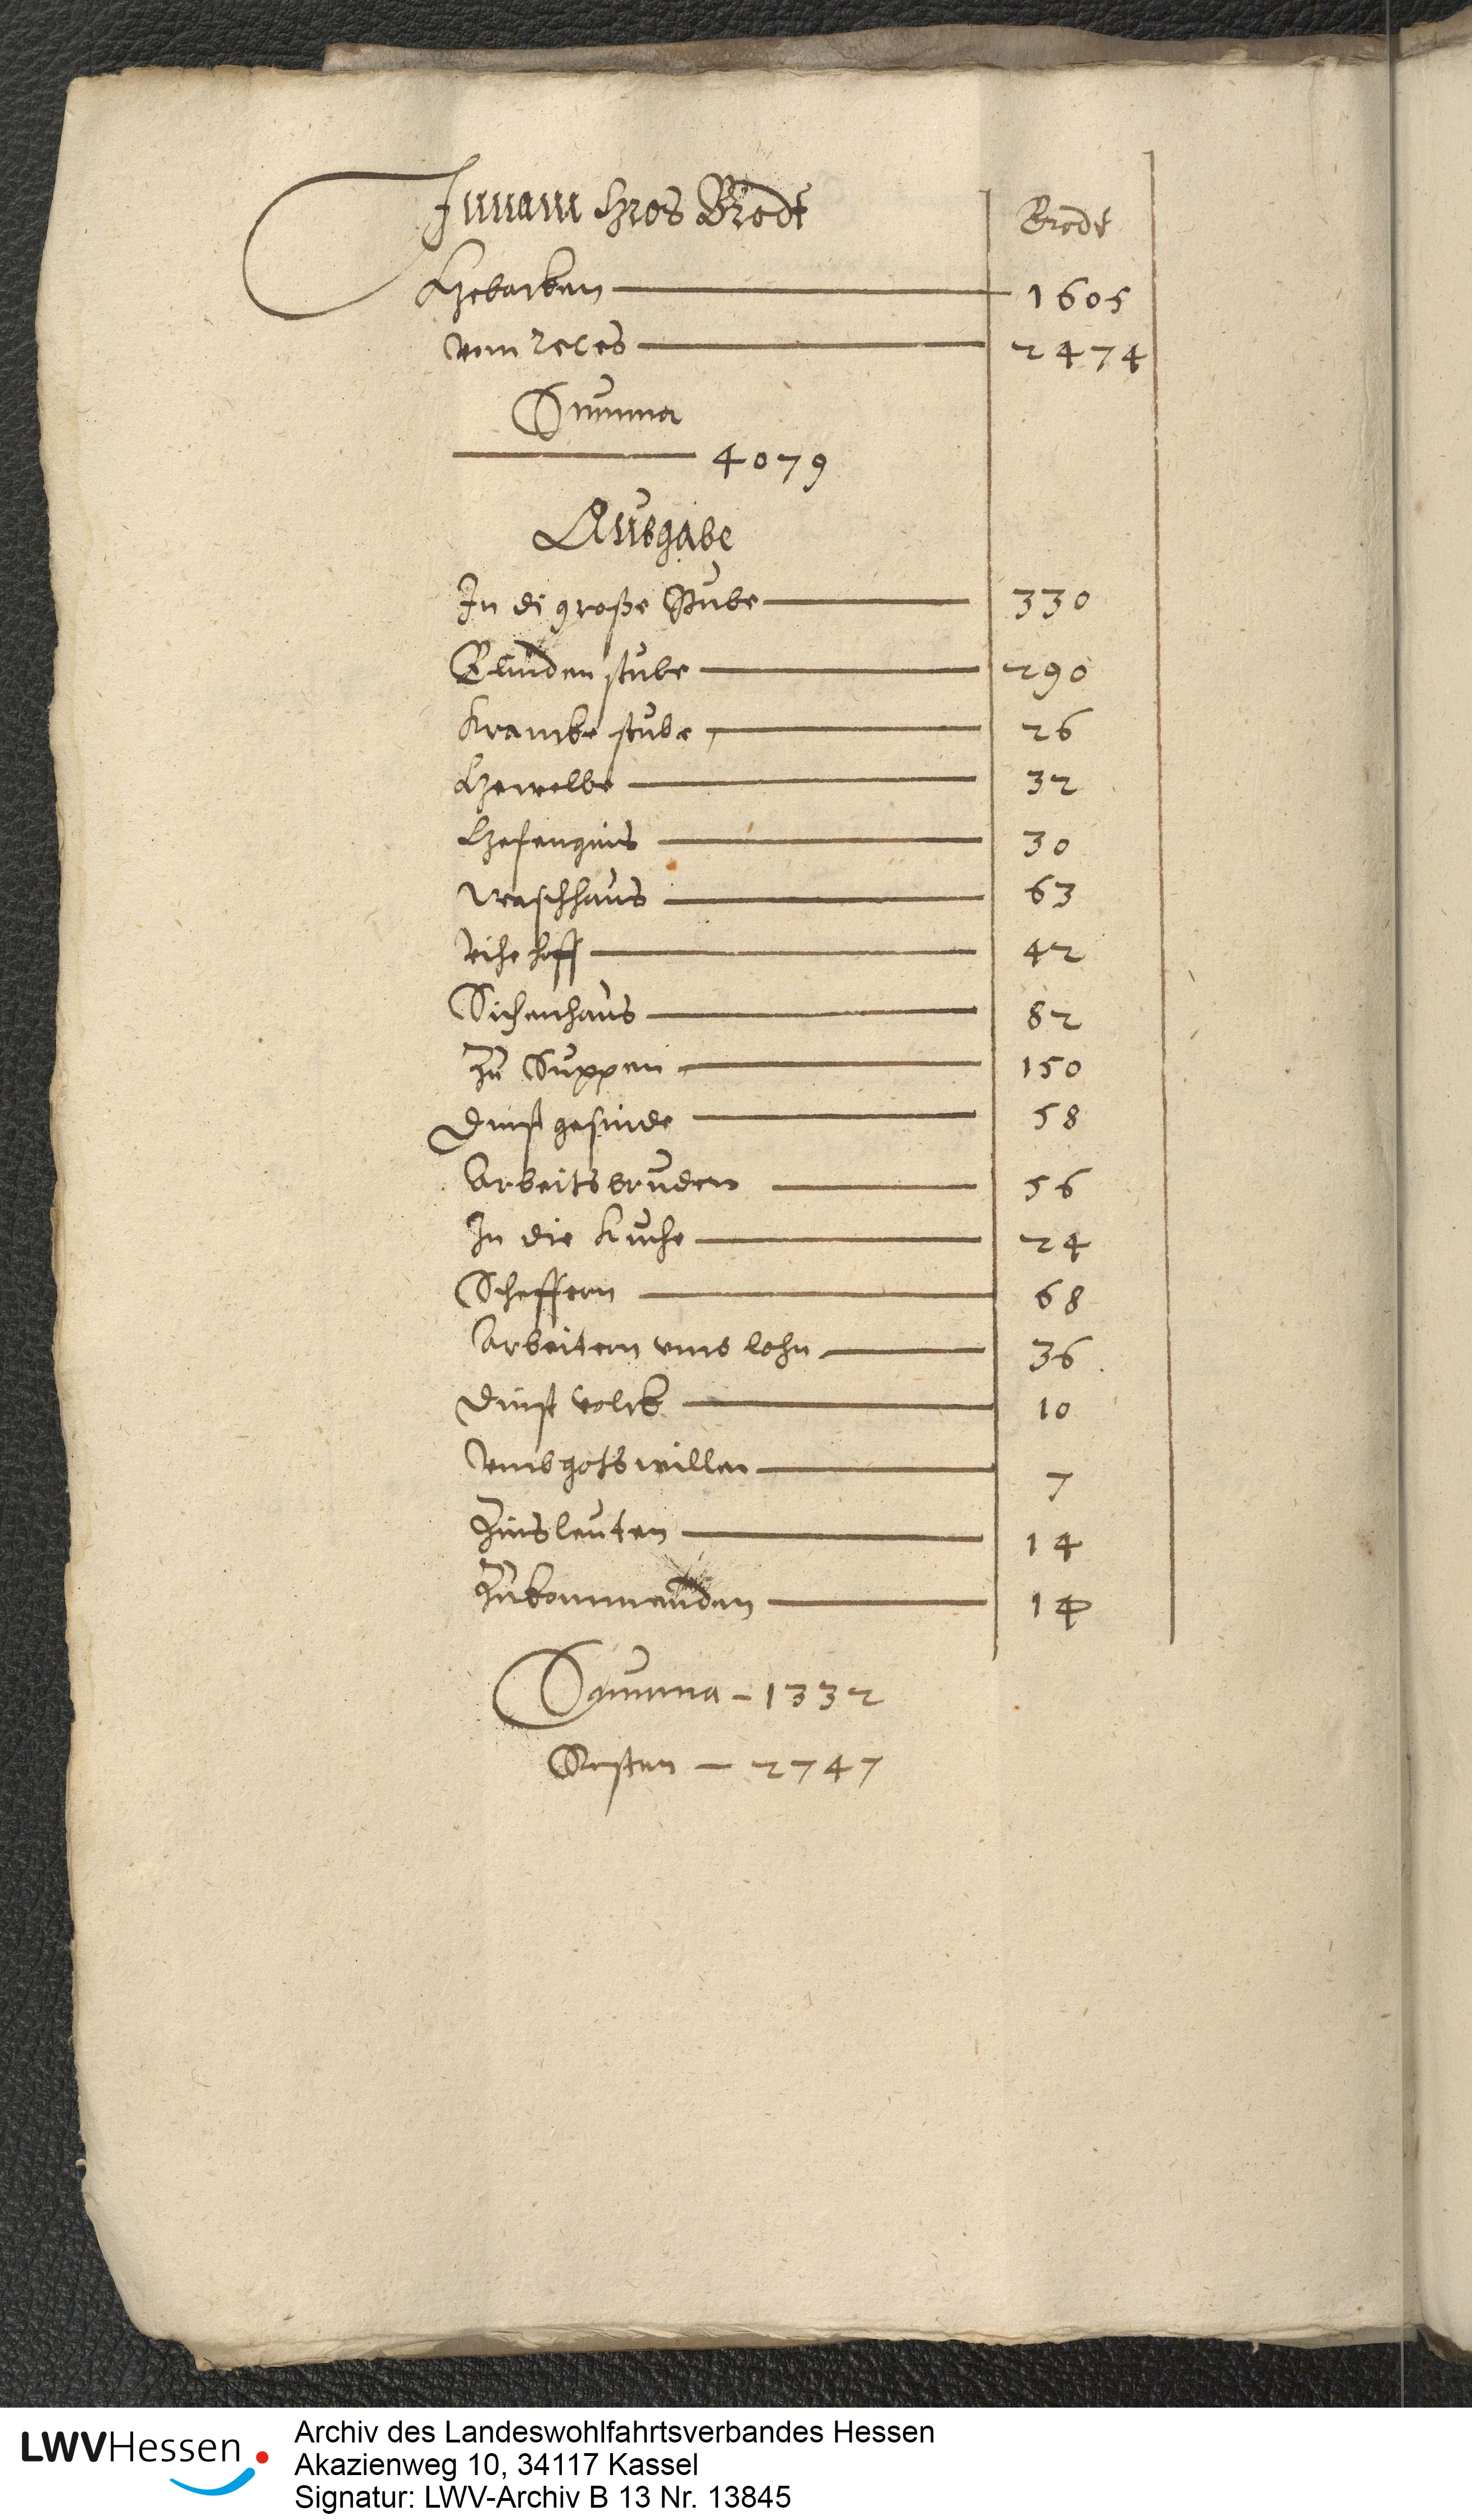 Innam Gros Brodt
Brodt
Gebacken 1605
vom reces 2474
Summa
4079
Ausgabe
In di große Stube 330
Blinden stube 290
Krancke stube 26
Gewelbe 32
Gefengnis 30
Waschhaus 63
Vihe hoff 42
Sichenhaus 82
Zu Suppen 150
Dinst gesinde 58
Arbeits brudern 56
In die Kuche 24
Scheffern 68
Arbeitern umb lohn 36
Dinst volck 10
Umb gots willen 7
Zinsleuten 14
Zukommenden 14
Summa - 1332
Resten - 2747
LWVHessen
Archiv des Landeswohlfahrtsverbandes Hessen
Akazienweg 10, 34117 Kassel
Signatur: LWV-Archiv B 13 Nr. 13845